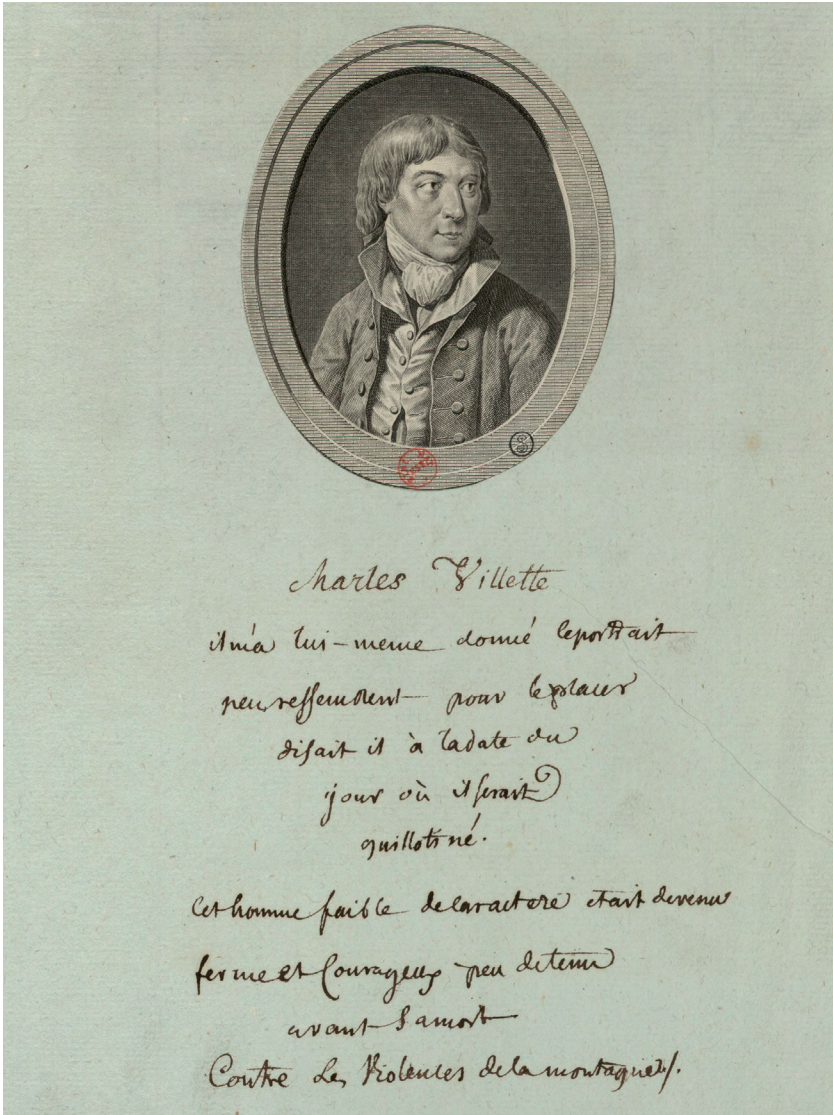 Charles Villette
il m'a lui-meme donné le portrait
peu ressemblent pour le placer
disait il à la date du
jour où il serait
guillotiné.
Cet homme faible de caractere etait devenu
ferme et Courageux peu de tems
avant sa mort
Contre Les Violences de la montagne.